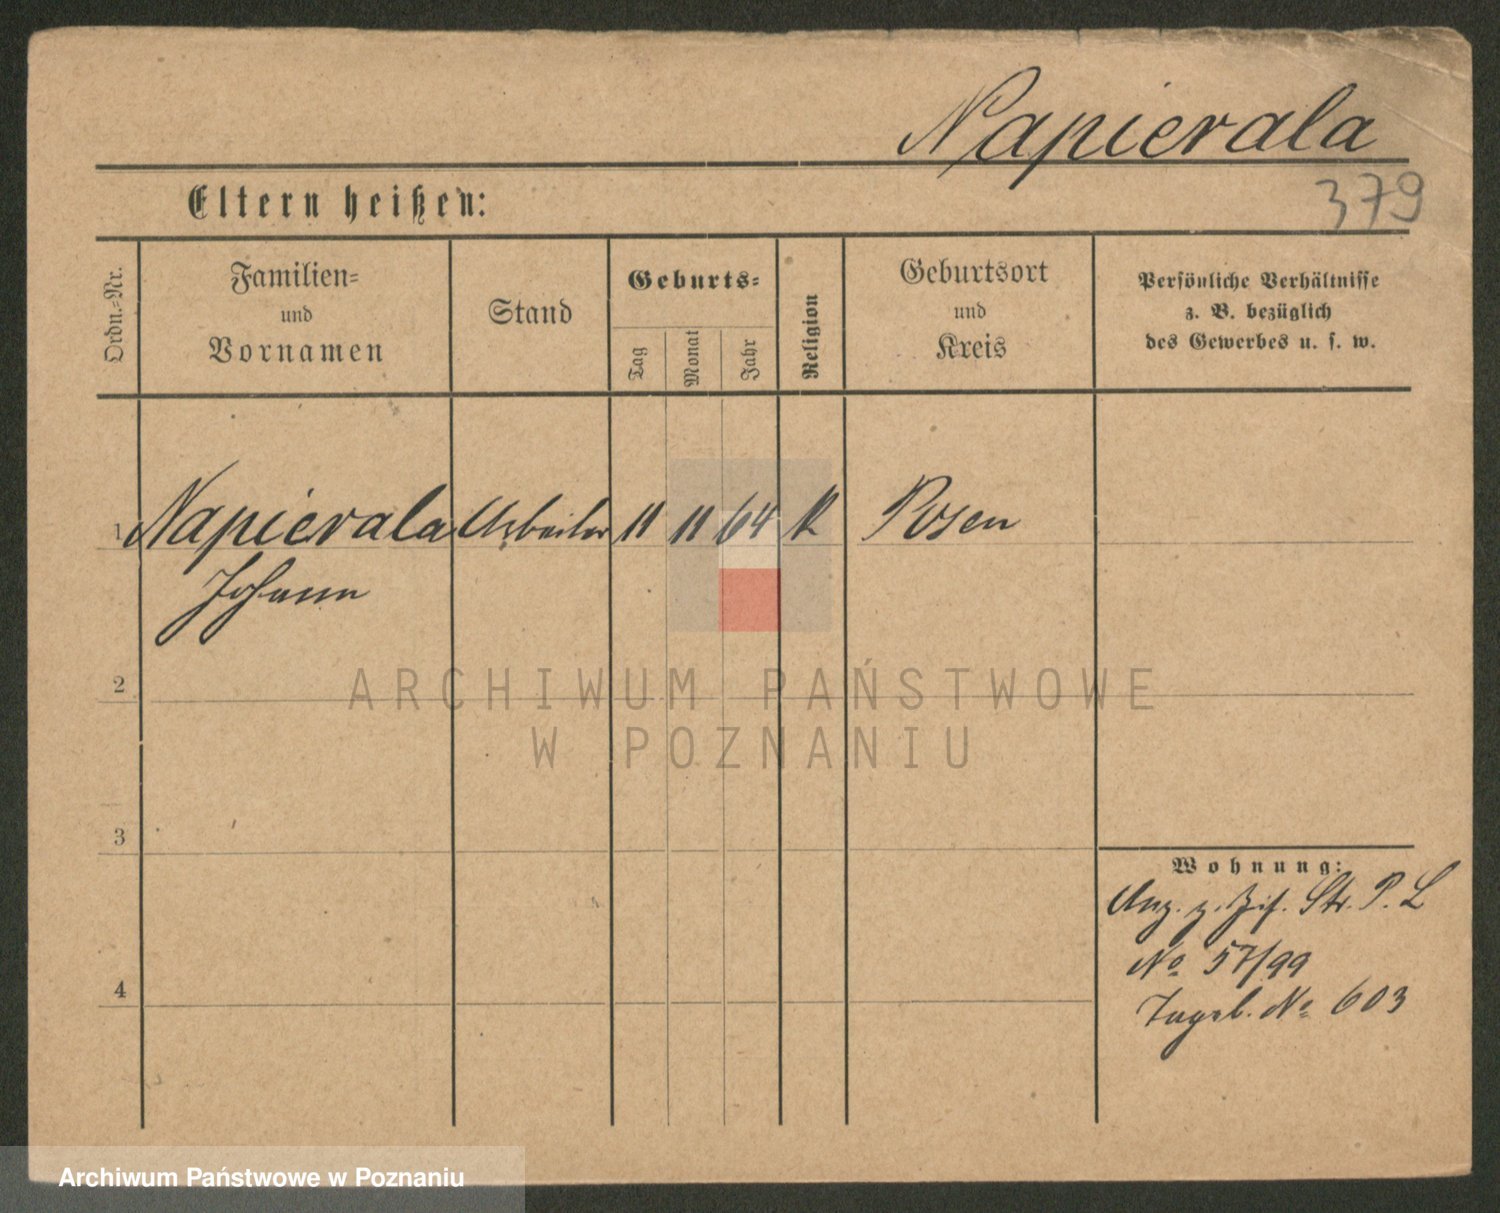 Napierala
Eltern heißen:
379
Ordn.=Nr.
Familien=
und
Vornamen
Stand
Geburts=
Tag
Monat
Jahr
Religion
Geburtsort
und
Kreis
Persönliche Verhältnisse
z. B. bezüglich
des Gewerbes u. s. w.
1 Napierala Arbeiter 11 11 64 K Posen
Johann
2
ARCHIWUM PAŃSTWOWE
W POZNANIU
3
Wohnung:
Anz. z. Str. P. L
No 57/99
4
Tagb. No 603
Archiwum Państwowe w Poznaniu